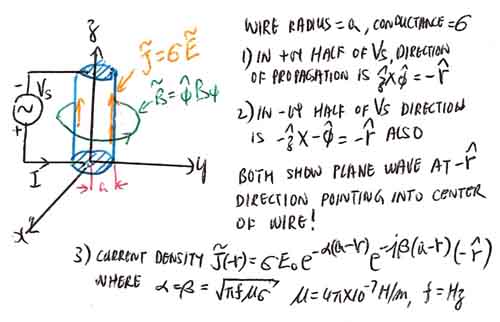 z
J̃ = σ Ẽ
B̃ = φ̂ Bφ
-
Vs
+
I
a
y
x
WIRE RADIUS = a, CONDUCTANCE = σ
1) IN +VE HALF OF Vs, DIRECTION
OF PROPAGATION IS ẑ X φ̂ = -r̂
2) IN -VE HALF OF Vs DIRECTION
IS -ẑ X -φ̂ = -r̂ ALSO
BOTH SHOW PLANE WAVE AT -r̂
DIRECTION POINTING INTO CENTER
OF WIRE!
3) CURRENT DENSITY J̃(r) = σ E₀ e^-α(a-r) e^-jβ(a-r) (-r̂)
WHERE α = β = √πfμσ μ = 4π×10⁻⁷ H/m, f = Hz